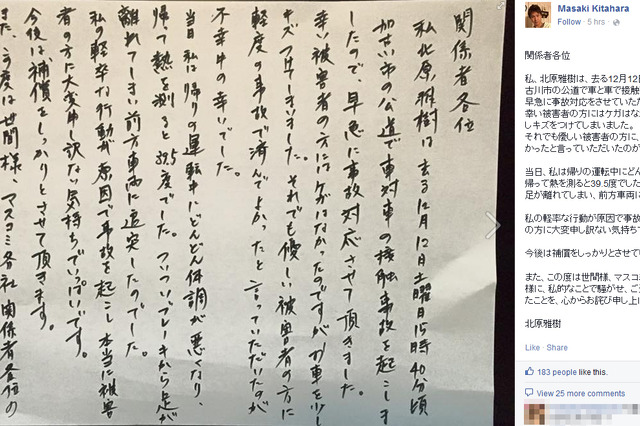 関係者各位
私北原雅樹は去る12月12日土曜日15時40分頃
加古川市の公道で車対車の接触事故を起こしま
したので、早急に事故対応させて頂きました。
幸い被害者の方にはケガはなかったのですがお車を少し
キズつけてしまいました。それでも優しい被害者の方に
軽度の事故で済んでよかったと言っていただいたのが
不幸中の幸いでした。
当日私は帰りの運転中にどんどん体調が悪くなり、
帰って熱を測ると39.5度でした。ついついブレーキから足が
離れてしまい前方車両に追突したのでした。
私の軽率な行動が原因で事故を起こし本当に被害
者の方に大変申し訳ない気持ちでいっぱいです。
今後は補償をしっかりとさせて頂きます。
また、この度は世間様、マスコミ各社関係者各位の
Masaki Kitahara
Follow · 5 hrs ·
関係者各位
私、北原雅樹は、去る12月12日
古川市の公道で車と車で接触
早急に事故対応をさせていた
幸い被害者の方にはケガはな
しキズをつけてしまいました。
それでも優しい被害者の方に、
かったと言っていただいたのが
当日、私は帰りの運転中にどん
帰って熱を測ると39.5度でした
足が離れてしまい、前方車両に
私の軽率な行動が原因で事故
の方に大変申し訳ない気持ち
今後は補償をしっかりとさせて
また、この度は世間様、マスコ
様に、私的なことで騒がせ、ご
たことを、心からお詫び申し上
北原雅樹
Like · Share
183 people like this.
View 25 more comments